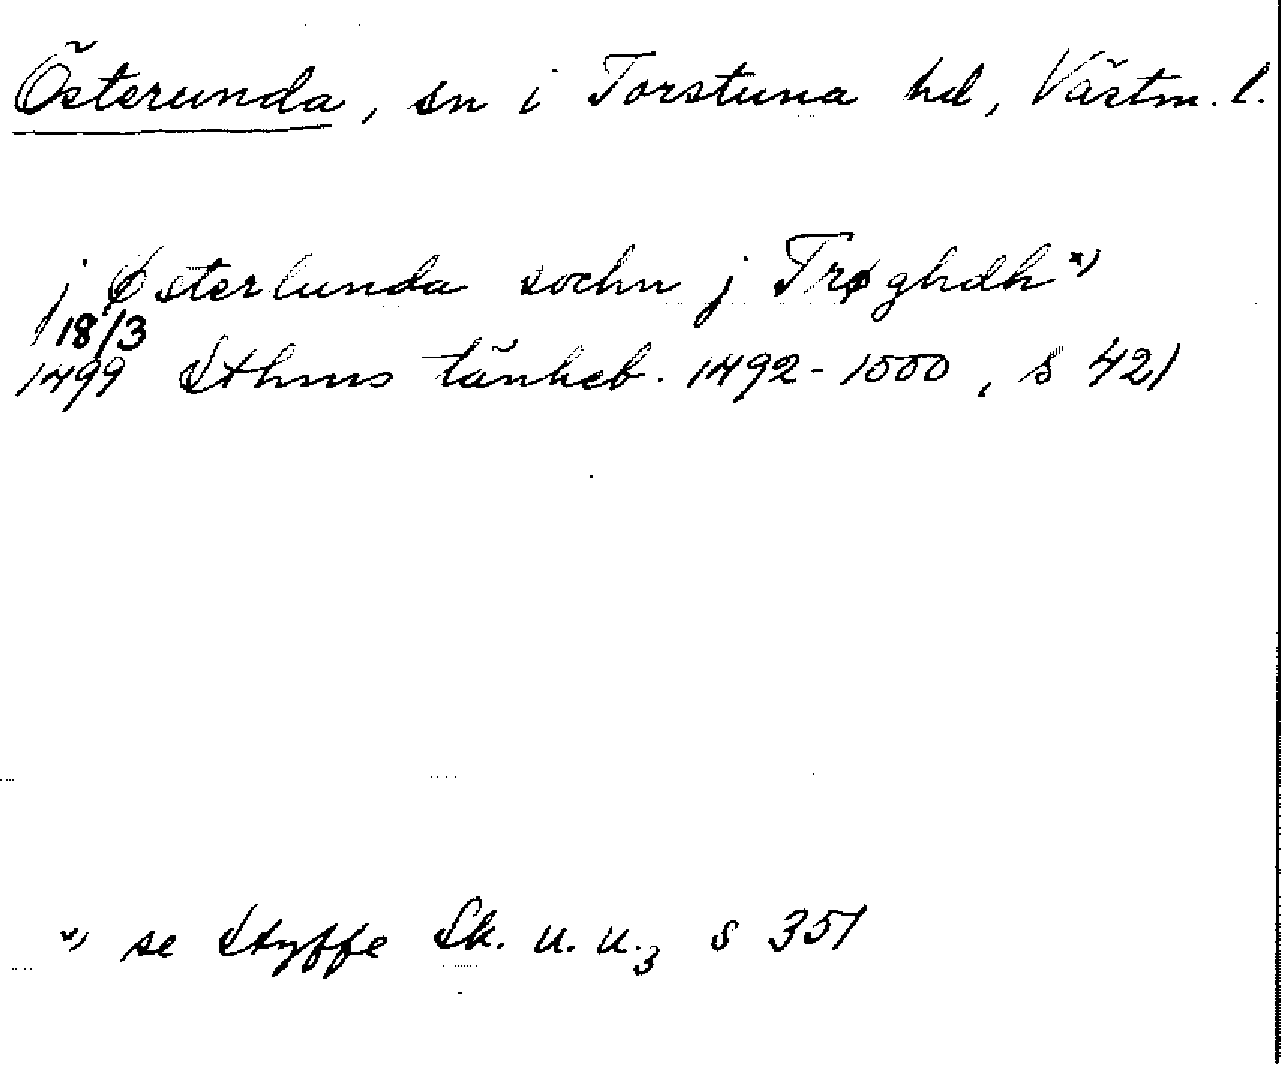 Österunda, sn i Torstuna hd, Västm. l.
j Østerlunda sochn j Trøghdh *)
18/3
1499 Sthms tänkeb. 1492-1500, s 421
*) se Styffe Sk. u. u.3 s 351